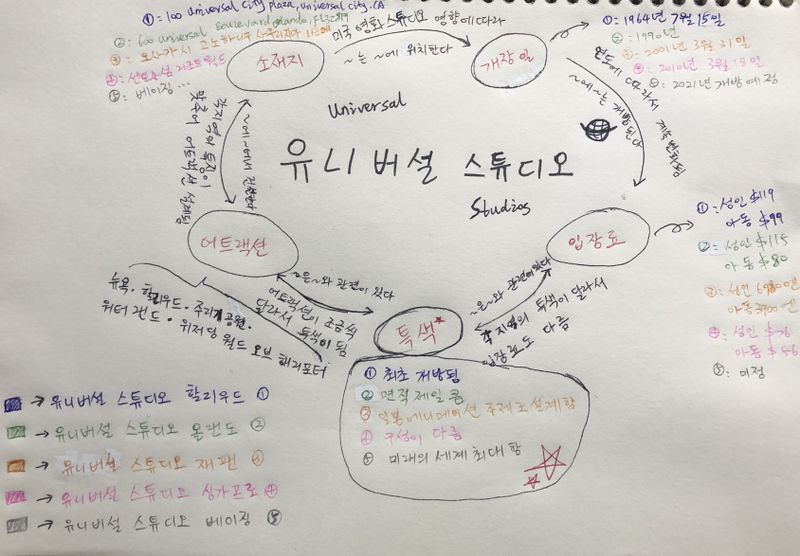 ①: 100 universal city plaza, universal city. CA
②: 600 universal boulevard orlando, FL32819
③: 오사카시 고노하나구 사쿠라지마
④: 센토사섬 리조트월드
⑤: 베이징 …
미국 영화 스튜디오 영향에 따라
소재지
~는 ~에 위치한다
개장일
①: 1964년 7월 15일
②: 1990년
③: 2001년 3월 31일
④: 2010년 3월 18일
⑤: 2021년 개방 예정
연도에 따라서 계속 변화됨
~에 ~는 개방된다
각 지역의 특징이
맞추어 어트랙션 설계됨
~에 ~에서 건설한다
Universal
유니버설 스튜디오
Studios
어트랙션
입장료
①: 성인 $119
아동 $99
②: 성인 $115
아동 $80
③: 성인 6980엔
아동 엔
④: 성인 $76
아동 $56
⑤: 미정
뉴욕·할리우드·쥬라기공원·
워터랜드·위저딩 월드 오브 해리포터
~은 ~와 관련이 있다
어트랙션이 조금씩
달라서 특색이 됨
~은 ~와 관련이 있다
각 지역의 특색이 달라서
입장료도 다름
특색*
① 최초 개방됨
② 면적 제일 큼
③ 일본 에니메이션 주제로 설계함
④ 구성이 다름
⑤ 미래의 세계 최대 함
→ 유니버설 스튜디오 할리우드 ①
→ 유니버설 스튜디오 올랜도 ②
→ 유니버설 스튜디오 재팬 ③
→ 유니버설 스튜디오 싱가프로 ④
→ 유니버설 스튜디오 베이징 ⑤